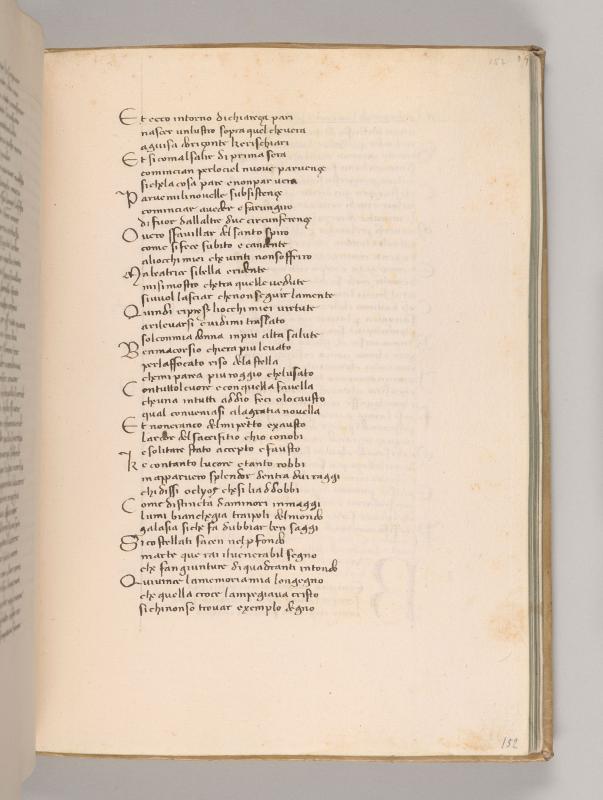 152
Et ecco intorno dichiareça pari
nascer unlustro sopra quel cheuera
aguisa dorizonte kerischiari
Et si comalsalir di prima sera
comincian perlociel nuoue paruençe
sichela cosa pare enonpar uera
Paruemili nouelle subsistençe
cominciar auedere efarungiro
difuor dallaltre due circunferençe
O uero sfauillar del santo spiro
come sifece subito e candente
aliocchi miei cheuinti nonsoffriro
Mabeatrice sibella eridente
misimostro chetra quelle uedute
siuuol lasciar chenonseguir lamente
Quindi ripresi liocchi miei uirtute
arileuarsi euidimi traslato
solconmia donna inpiu alta salute
Benmacorsio chiera piu leuato
perlaffocato riso dela stella
chemi parea piu roggio chelusato
Contuttol cuore econquella fauella
cheuna intutti addio feci olocausto
qual conueniasi ala gratia nouella
Et noneranco delmi petto exausto
lardore del sacrifitio chio conobi
esolitare stato accepto efausto
Ke contanto lucore etanto robbi
mapparuero splendor dentra dui raggi
chi dissi oelyos chesi lia ddobbi
Come distincta daminori inmaggi
lumi biancheggia traipoli delmondo
galasia siche fa dubbiar ben saggi
Si costellati facen nel pfondo
marte que rai iluenerabil segno
che fan giunture di quadranti intondo
Qui uince lamemoria mia longegno
che quella croce lampegiaua cristo
si chinonso trouar exemplo degno
152